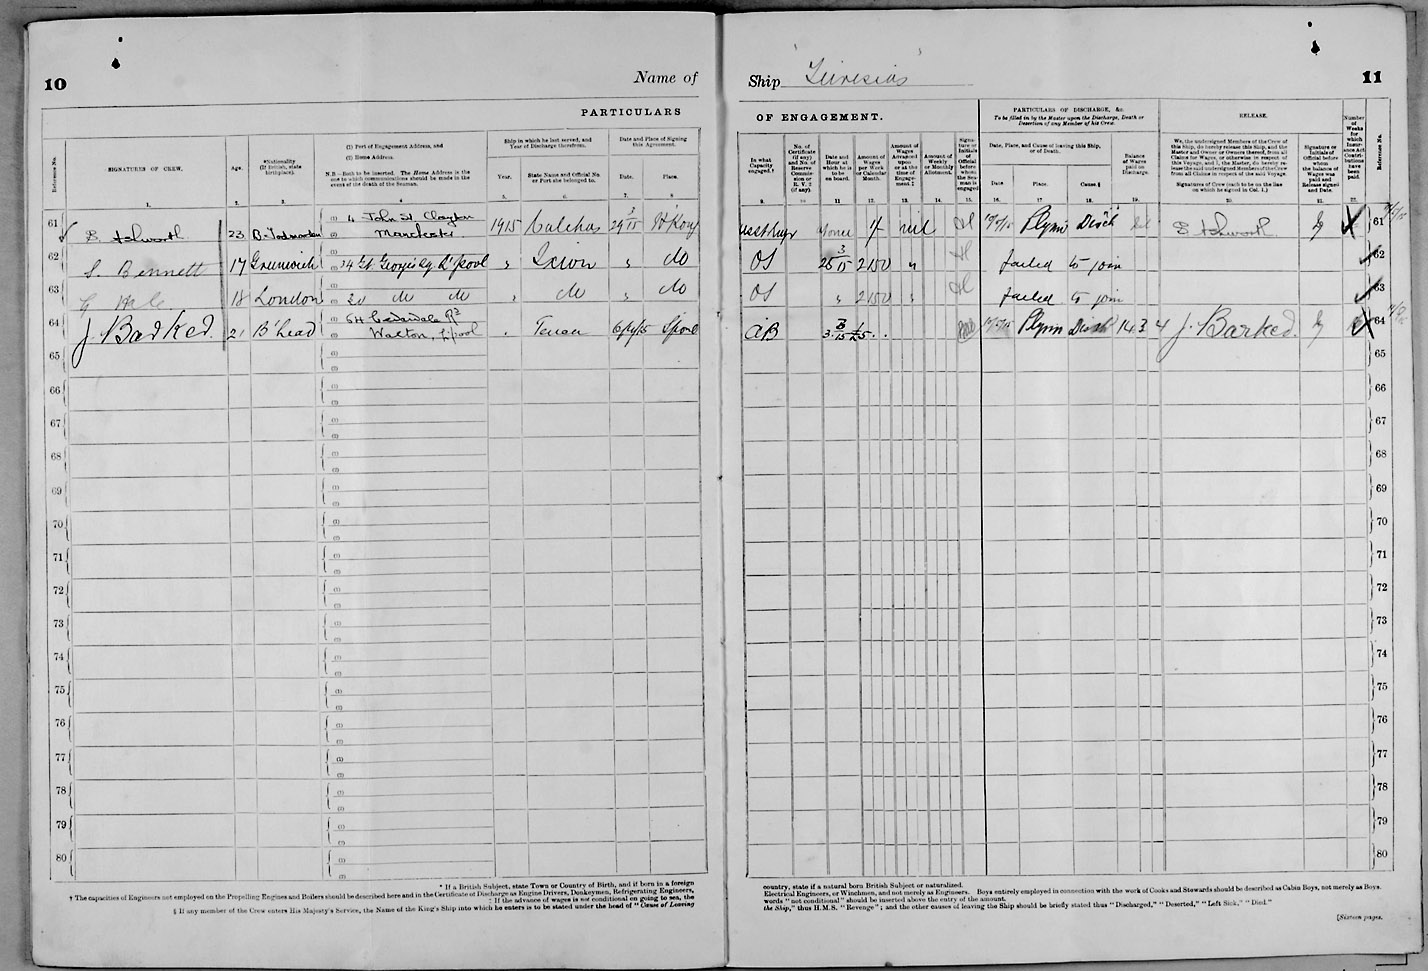 10
Name of
Ship Teiresias
11
PARTICULARS
OF ENGAGEMENT.
PARTICULARS OF DISCHARGE, &c.
To be filled in by the Master upon the Discharge, Death or
Desertion of any Member of his Crew.
RELEASE.
Reference No.
SIGNATURES OF CREW.
Age.
*Nationality
(If British, state
birthplace).
(1) Port of Engagement Address, and
(2) Home Address.
N.B.—Both to be inserted. The Home Address is the
one to which communications should be made in the
event of the death of the Seaman.
Ship in which he last served, and
Year of Discharge therefrom.
Year.
State Name and Official No.
or Port she belonged to.
Date and Place of Signing
this Agreement.
Date.
Place.
In what
Capacity
engaged.†
No. of
Certificate
(if any)
and No. of
Reserve
Commis-
sion or
R. V. 2
(if any).
Date and
Hour at
which to
be on
board.
Amount of
Wages
per Week
or Calendar
Month.
Amount of
Wages
Advanced
upon
or at the
time of
Engage-
ment.‡
Amount of
Weekly or
Monthly
Allotment.
Signa-
ture or
Initials
of
Official
before
whom
the Sea-
man is
engaged
Date, Place, and Cause of leaving this Ship,
or of Death.
Date
Place.
Cause.§
Balance
of Wages
paid on
Discharge.
We, the undersigned Members of the Crew of
this Ship, do hereby release this Ship, and the
Master and Owner or Owners thereof, from all
Claims for Wages, or otherwise in respect of
this Voyage, and I, the Master, do hereby re-
lease the undersigned Members of the Crew
from all Claims in respect of the said Voyage.
Signatures of Crew (each to be on the line
on which he signed in Col. 1.)
Signature or
Initials of
Official before
whom
the balance of
Wages was
paid and
Release signed
and Date.
Number
of
Weeks
for
which
Insur-
ance Act
Contri-
butions
have
been
paid.
Reference No.
1. 2. 3. 4 5. 6. 7. 8. 9. 10 11 12. 13. 14. 15. 16. 17. 18. 19. 20. 21. 22.
61 E Ashworth 23 B-Todmorden (1) 4 John St. Clayton (2) Manchester 1915 Calchas 29 3/15 H'Kong nil Plym Disch E Ashworth 61
62 S. Bennett 17 Greenwich L'pool " Ixion " do OS 25 3/15 2150 " failed to join 62
63 18 London 20 do do " do " do OS " 2150 " failed to join 63
64 J. Barked. 21 B'head (1) 54 Rd (2) Walton, L/pool AB Plym Disch 14 3 4 J. Barked. 64
65 65
66 66
67 67
68 68
69 69
70 70
71 71
72 72
73 73
74 74
75 75
76 76
77 77
78 78
79 79
80 80
* If a British Subject, state Town or Country of Birth, and if born in a foreign
country, state if a natural born British Subject or naturalized.
† The capacities of Engineers not employed on the Propelling Engines and Boilers should be described here and in the Certificate of Discharge as Engine Drivers, Donkeymen, Refrigerating Engineers,
Electrical Engineers, or Winchmen, and not merely as Engineers. Boys entirely employed in connection with the work of Cooks and Stewards should be described as Cabin Boys, not merely as Boys.
‡ If the advance of wages is not conditional on going to sea, the
words "not conditional" should be inserted above the entry of the amount.
§ If any member of the Crew enters His Majesty's Service, the Name of the King's Ship into which he enters is to be stated under the head of "Cause of Leaving
the Ship," thus H.M.S. "Revenge"; and the other causes of leaving the Ship should be briefly stated thus "Discharged," "Deserted," "Left Sick," "Died."
[Sixteen pages.